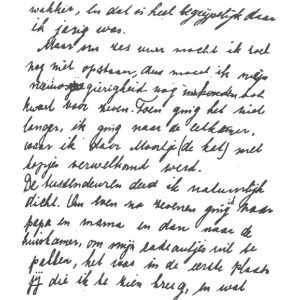 wakker, en dat is heel begrijpelijk daar
ik jarig was.
Maar om zes uur mocht ik toch
nog niet opstaan, dus moest ik mijn
nieuwsgierigheid nog bedwingen tot
kwart voor zeven. Toen ging het niet
langer, ik ging naar de eetkamer,
waar ik door Moortje (de kat) met
kopjes verwelkomd werd.
De tussendeuren deed ik natuurlijk
dicht. Om even na zevenen ging ik naar
papa en mama en dan naar de
huiskamer, om mijn cadeautjes uit te
pakken, het was in de eerste plaats
jij die ik te zien kreeg, en wat